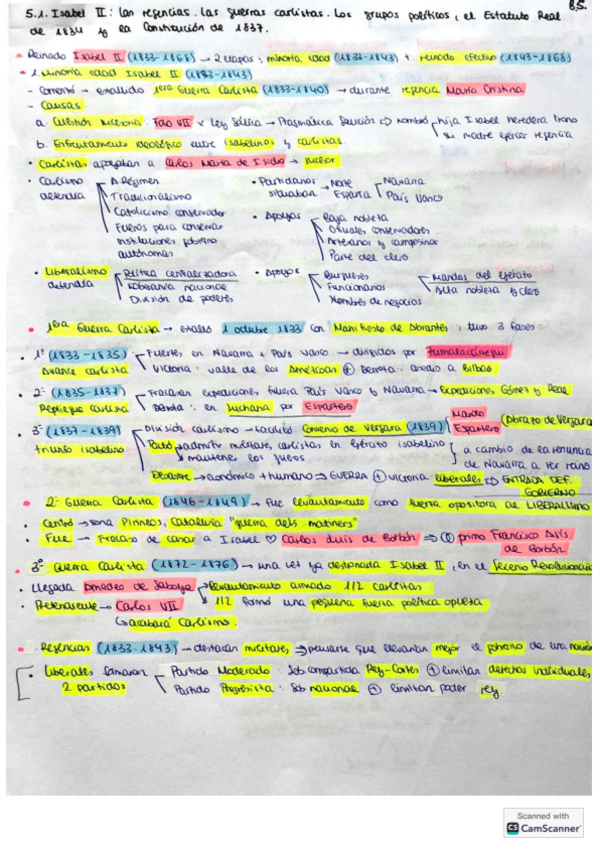 B.5.
5.1. Isabel II: Las regencias. Las guerras carlistas. Los grupos políticos, el Estatuto Real
de 1834 y la Constitución de 1837.
Reinado Isabel II (1833-1868) → 2 etapas: minoría edad (1833-1843) + reinado efectivo (1843-1868)
1. Minoría edad Isabel II (1833-1843)
- Comenzó → estallido 1era Guerra Carlista (1833-1840) → durante regencia María Cristina
- Causas
a. Cuestión sucesoria: Fdo VII x Ley Sálica → Pragmática Sanción ⇒ nombró hija Isabel heredera trono
su madre ejercer regencia
b. Enfrentamiento ideológico entre isabelinos y carlistas.
Carlistas apoyaban a Carlos María de Isidro → sucesor
Carlismo defendía
A.Régimen
Tradicionalismo
Catolicismo conservador
Fueros para conservar
instituciones gobierno
autónomas
Partidarios situaban → Norte España
Navarra
País Vasco
Apoyos
Baja nobleza
Oficiales conservadores
Artesanos y campesinos
Parte del clero
Liberalismo defendía
Política centralizadora
soberanía nacional
División de poderes
Apoyos
Burgueses
Funcionarios
Hombres de negocios
Mandos del ejército
Alta nobleza y clero
1era Guerra Carlista → estalló 1 octubre 1833 con Manifiesto de Abrantes, tuvo 3 fases
1ª (1833-1835) Avance carlista
Fuertes en Navarra + País Vasco → dirigidos por Zumalacárregui
Victoria: valle de las Améscoas ⊕ Derrota: asedio a Bilbao
2ª (1835-1837) Repliegue carlista
Fracasan expediciones fuera País Vasco y Navarra → Expediciones Gómez y Real
Derrota: en Luchana por Espartero
3ª (1837-1839) triunfo isabelino
División carlismo → facilitó Convenio de Vergara (1839) Maroto Espartero (Abrazo de Vergara)
admitir militares carlistas en ejército isabelino
mantener los fueros
a cambio de la renuncia
de Navarra a ser reino
económico + humano ⇒ GUERRA ⊕ victoria liberales ⇨ ENTRADA DEF. GOBIERNO
2ª Guerra Carlista (1846-1849) → fue levantamiento como fuerza opositora de LIBERALISMO
Centró → zona Pirineos, Cataluña "guerra dels matiners"
Fue → Fracaso de casar a Isabel ♡ Carlos Luis de Borbón ⇒ primo Francisco Asís
de Borbón
3ª Guerra Carlista (1872-1876) → una vez ya destronada Isabel II, en el Sexenio Revolucionario
Llegada Amadeo de Saboya
levantamiento armado 1/2 carlistas
1/2 formó una pequeña fuerza política opuesta
Pretendiente → Carlos VII
↳ acabará Carlismo.
Regencias (1833-1843) → destacan militares, ⇒ pensarse que llevarían mejor el gobierno de una nación
Liberales formaron
2 partidos
Partido Moderado: Sob compartida Rey-Cortes ⊕ limitan derechos individuales
Partido Progresista: Sob nacional ⊕ limitan poder rey
Scanned with
CS CamScanner